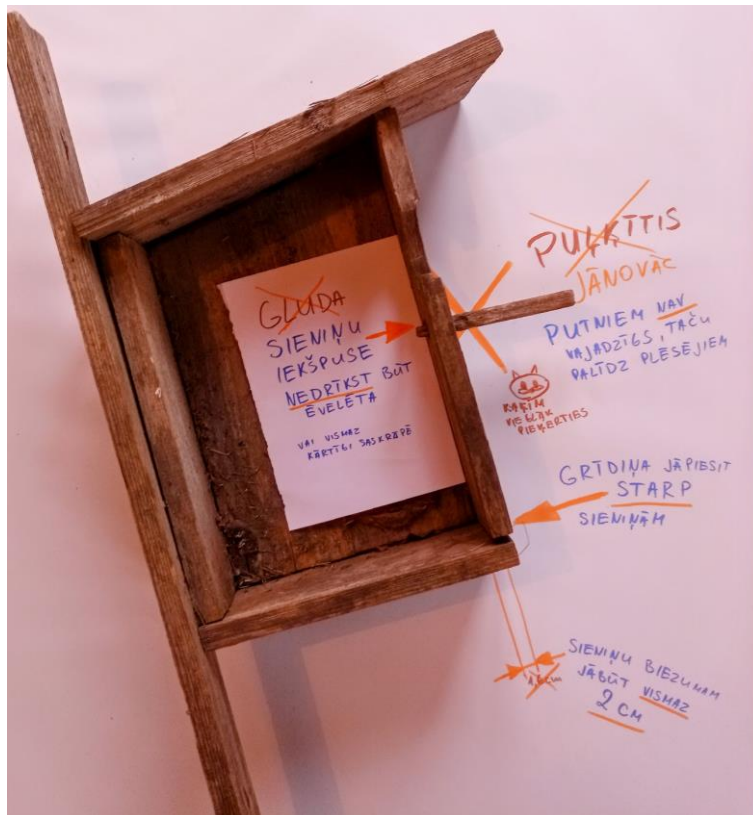 GLUDA
SIENIŅU
IEKŠPUSE
NEDRĪKST BŪT
ĒVELĒTA
VAI VISMAZ
KĀRTĪGI SASKRĀPĒ
PUĻĶĪTIS
JĀNOVĀC
PUTNIEM NAV
VAJADZĪGS, TAČU
PALĪDZ PLĒSĒJIEM
KAĶIM
VIEGLĀK
PIEĶERTIES
GRĪDIŅA JĀPIESIT
STARP
SIENIŅĀM
SIENIŅU BIEZUMAM
JĀBŪT VISMAZ
2 CM